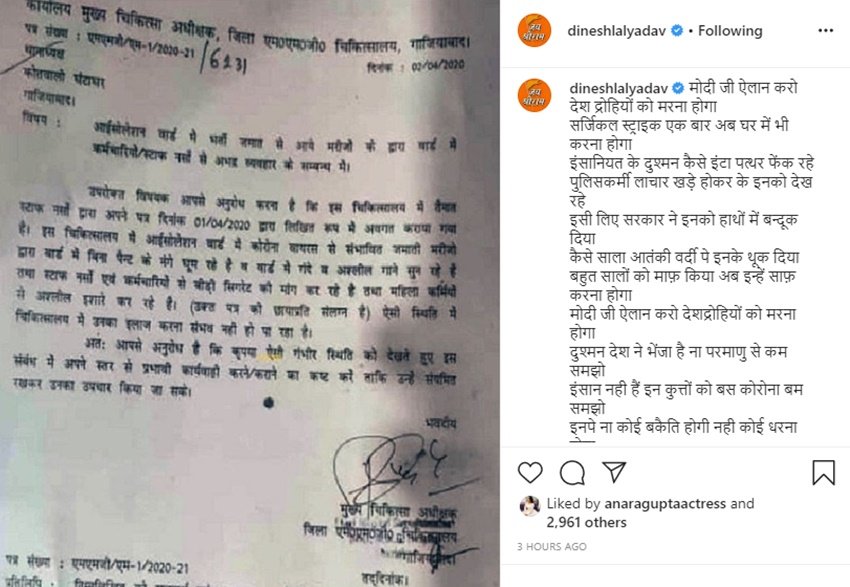 कार्यालय मुख्य चिकित्सा अधीक्षक, जिला एम0एम0जी0 चिकित्सालय, गाजियाबाद।
पत्र संख्या : एमएमजी/एम-1/2020-21/6231 दिनांक : 02/04/2020
थानाध्यक्ष
कोतवाली घंटाघर
गाजियाबाद।
विषय :
आईसोलेशन वार्ड में भर्ती जमात से आये मरीजों के द्वारा वार्ड में
कर्मचारियों/स्टाफ नर्सों से अभद्र व्यवहार के सम्बन्ध में।
उपरोक्त विषयक आपसे अनुरोध करना है कि इस चिकित्सालय में तैनात
स्टाफ नर्सो द्वारा अपने पत्र दिनांक 01/04/2020 द्वारा लिखित रूप में अवगत कराया गया
है। इस चिकित्सालय में आईसोलेशन वार्ड में कोरोना वायरस से संभावित जमाती मरीजो
द्वारा वार्ड में बिना पैन्ट के नंगे घूम रहे है व वार्ड में गंदे व अश्लील गाने सुन रहे है
तथा स्टाफ नर्सों एवं कर्मचारियों से बीड़ी सिगरेट की मांग कर रहे है तथा महिला कर्मियों
से अश्लील इशारे कर रहे है। (उक्त पत्र को छायाप्रति संलग्न है) ऐसी स्थिति में
चिकित्सालय में उनका इलाज करना संभव नही हो पा रहा है।
अतः आपसे अनुरोध है कि कृपया ऐसी गंभीर स्थिति को देखते हुए इस
संबंध में अपने स्तर से प्रभावी कार्यवाही करने/कराने का कष्ट करें ताकि उन्हे संयमित
रखकर उनका उपचार किया जा सके।
भवदीय
मुख्य चिकित्सा अधीक्षक
जिला एम0एम0जी0 चिकित्सालय
गाजियाबाद।
पत्र संख्या : एमएमजी/एम-1/2020-21
तद्दिनांक।
जय
श्रीराम
dineshlalyadav • Following
जय
श्रीराम
dineshlalyadav मोदी जी ऐलान करो
देश द्रोहियों को मरना होगा
सर्जिकल स्ट्राइक एक बार अब घर में भी
करना होगा
इंसानियत के दुश्मन कैसे इंटा पत्थर फेंक रहे
पुलिसकर्मी लाचार खड़े होकर के इनको देख
रहे
इसी लिए सरकार ने इनको हाथों में बन्दूक
दिया
कैसे साला आतंकी वर्दी पे इनके थूक दिया
बहुत सालों को माफ़ किया अब इन्हें साफ़
करना होगा
मोदी जी ऐलान करो देशद्रोहियों को मरना
होगा
दुश्मन देश ने भेंजा है ना परमाणु से कम
समझो
इंसान नही हैं इन कुत्तों को बस कोरोना बम
समझो
इनपे ना कोई बकैति होगी नही कोई धरना
Liked by anaraguptaactress and
2,961 others
3 HOURS AGO